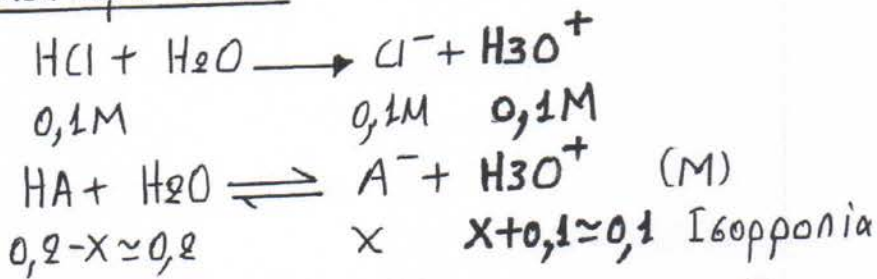 HCl + H2O ⟶ Cl⁻ + H3O⁺
0,1M 0,1M 0,1M
HA + H2O ⇌ A⁻ + H3O⁺ (M)
0,2-x≃0,2 x x+0,1≃0,1 Ισορροπία